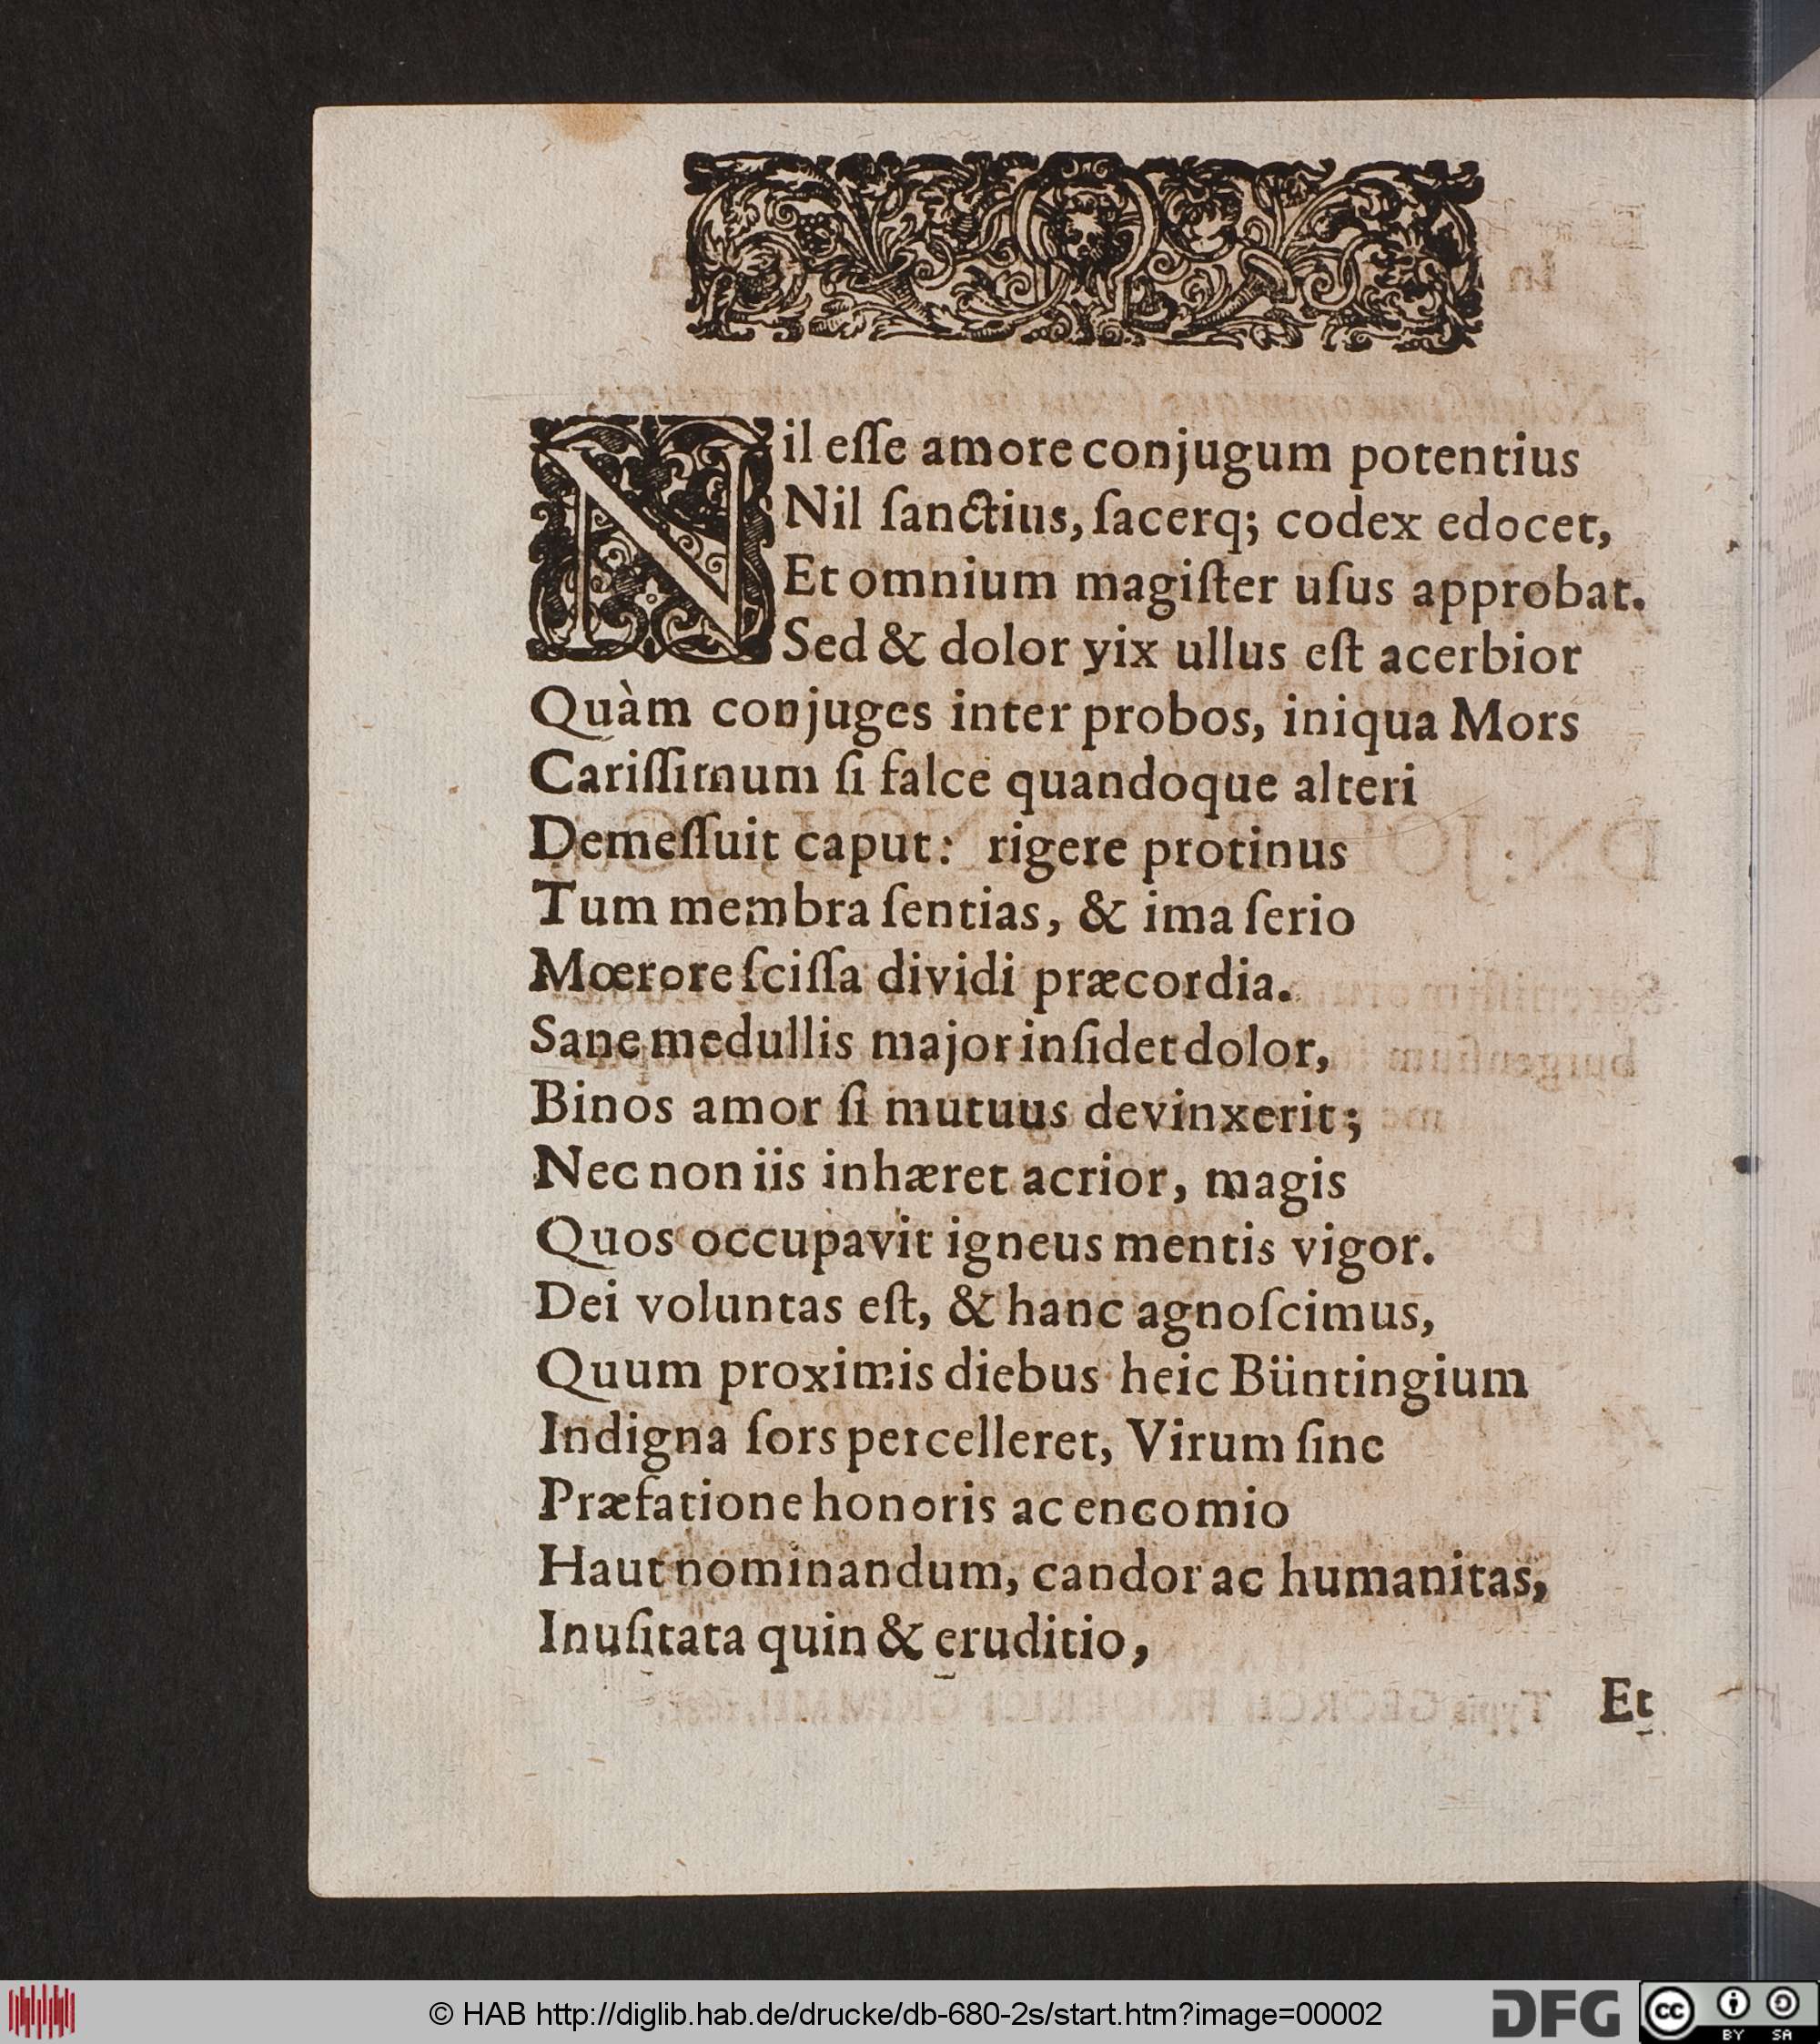 Nil eſſe amore conjugum potentius
Nil ſanctius, ſacerq; codex edocet,
Et omnium magiſter uſus approbat.
Sed & dolor yix ullus eſt acerbior
Quàm conjuges inter probos, iniqua Mors
Cariſſimum ſi falce quandoque alteri
Demeſſuit caput: rigere protinus
Tum membra ſentias, & ima ſerio
Mœrore ſciſſa dividi præcordia.
Sane medullis major inſidet dolor,
Binos amor ſi mutuus devinxerit;
Nec non iis inhæret acrior, magis
Quos occupavit igneus mentis vigor.
Dei voluntas eſt, & hanc agnoſcimus,
Quum proximis diebus heic Büntingium
Indigna ſors percelleret, Virum ſine
Præfatione honoris ac encomio
Haut nominandum, candor ac humanitas,
Inuſitata quin & eruditio,
Et
© HAB http://diglib.hab.de/drucke/db-680-2s/start.htm?image=00002
DFG
cc BY SA